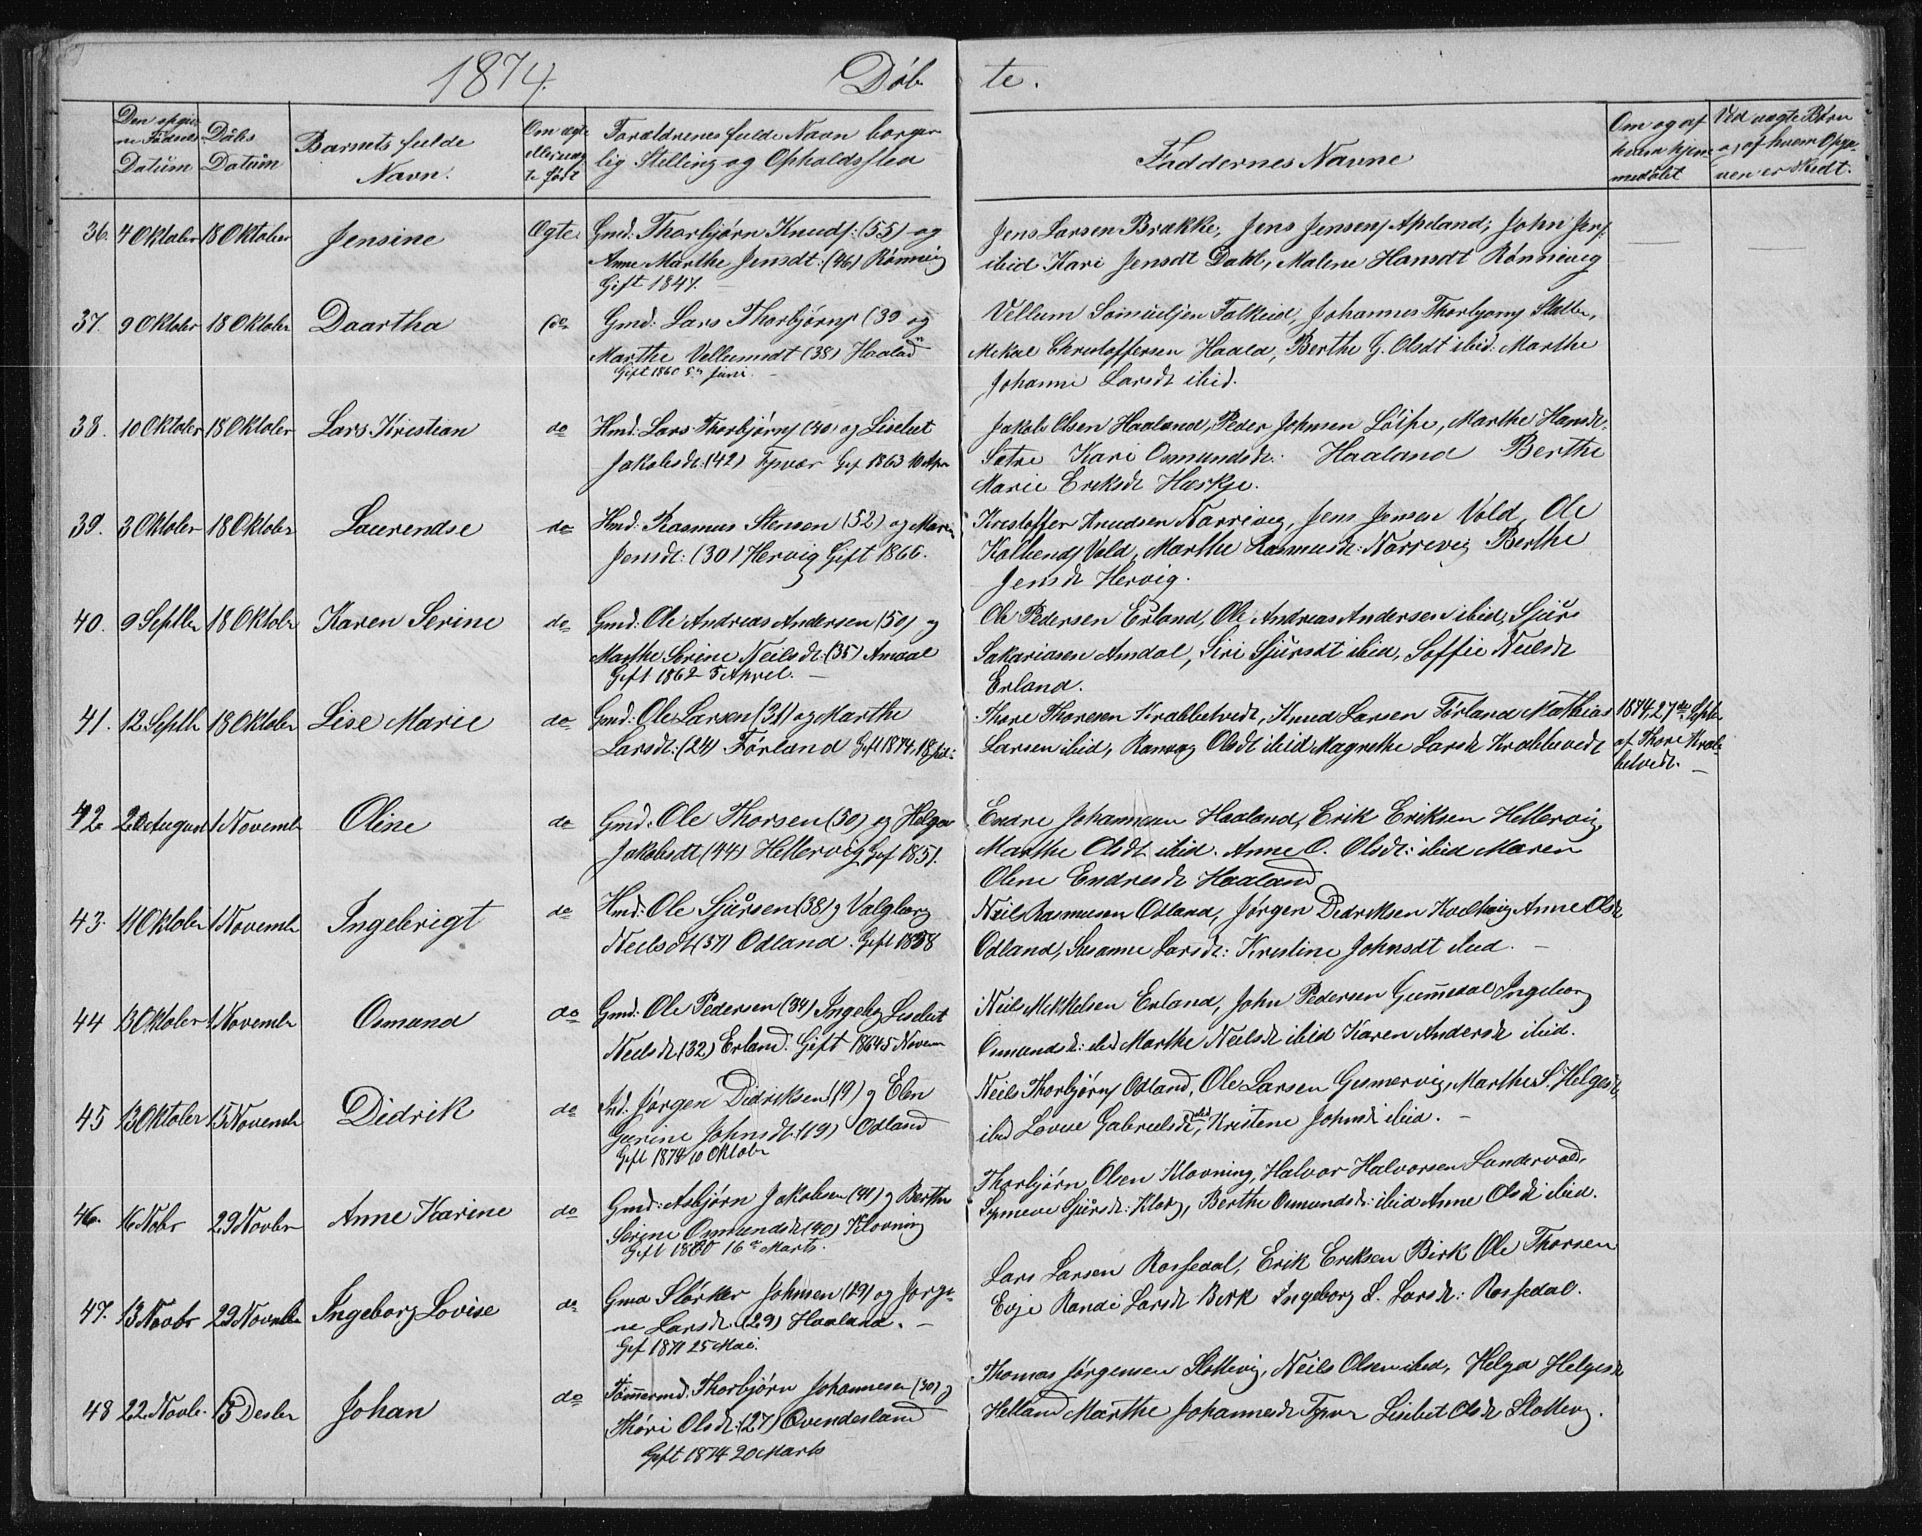 1874. Døb te.
Den opgiv- ne Fødsels Datum
Daabs Datum
Barnets fulde Navn.
Om ægte eller uæg- te født
Forældrenes fulde Navn borger- lig Stilling og Opholdssted
Faddernes Navne
Om og af hvem hjem- medøbt
Ved uægte Børn og af hvem Opga- ven er skedt.
36. 4 Oktober 18 Oktober Jensine Ægte. Gmd: Thorbjørn Knuds: (55) og
Anne Marthe Jensdt: (46) Rønnevig
Gift 1847. —
Jens Larsen Brække, Jens Jensens Apeland, John Jens:
ibid Kari Jensdt Dahl, Malene Hansdt Rønnevig
37. 9 Oktober 18 Oktober Daartha do Gmd: Lars Thorbjørns (30 og
Marthe Vellumsdt (38) Haaland
Gift 1860 5n Juni. —
Vellum Samuelsen Falkeid, Johannes Thorbjørns Slotten,
Mekal Christoffersen Haala, Berthe G. Olsdt ibid. Marthe
Johanne Larsdt ibid.
38. 10 Oktober 18 Oktober Lars Kristian do Hmd: Lars Thorbjørns (30) og Lisebet
Jakobsdt: (42) Tysvær Gif 1863 10 Apr
Jakob Olsen Haaland, Peder Johnsen Løipe, Marthe Hansdt.
Sætre Kari Osmundsdt. Haaland Berthe
Marie Eriksdt Heskje.
39. 3 Oktober 18 Oktobr Laurendse do Hmd: Rasmus Stensen (52) og Maren
Jensdt: (30) Hervig Gift 1866.
Kristoffer Knudsen Norrevig, Jens Jensen Vold, Ole
Kolbends Vold, Marthe Rasmusdt: Norrevig Berthe
Jensdt Hervig.
40. 9 Septbr 18 Oktobr Karen Serine do Gmd: Ole Andreas Andersen (50) og
Marthe Serine Neilsdt: (35) Amdal
Gift 1862 5 April. —
Ole Pedersen Erland, Ole Andreas Andersen ibid, Sjurs
Sakariasen Amdal, Siri Sjursdt ibid, Soffie Neilsdt
Erland.
41. 12 Septb 18 Oktober Lise Marie do Gmd: Ole Larsen (31) og Marthe
Larsdt: (24) Førland Gift 1874. 18
Thore Thoresen Krabbetvedt, Knud Larsen Førland Mathias
Larsen ibid, Ranveg Olsdt ibid Magrethe Larsdt Krabbetvedt
1874, 27de Septb
af Thore Krab-
betvedt. —
42. 20 August 1 Novemb Oline do Gmd: Ole Thorsen (50) og Helga
Jakobsdt (44) Hellervig Gif 1851.
Endre Johannesen Haaland, Erik Eriksen Hellervig,
Marthe Olsdt ibid. Anne O. Olsdt: ibid Maren
Olene Endresdt Haaland
43. 11 Oktober 1 Novemb Ingebrigt do Hmd: Ole Sjursen (38) og Valgborg
Neilsdt (37) Odland. Gift 1858
Neils Rasmusen Odland, Jørgen Dedriksen Anne Olsdt
Odland, Susanne Larsdt: Kristine Johnsdt ibid. —
44 13 Oktober 1 Novemb Osmund do Gmd: Ole Pedersen (34) Ingeborg Lisebet
Neilsdt (32) Erland. Gift 1864 5 Novem
Neils Mikkelsen Erland, John Pedersen Gumedal Ingeborg
Osmundsdt: ibid Marthe Neilsdt ibid Karen Andersdt ibid.
45 13 Oktober 15 Novemb Didrik do Ind: Jørgen Didriksen (19) og Elen
Gurine Johnsdt: (19) Odland
Gift 1874 10 Oktobr
Neils Thorbjørns Odland, Ole Larsen Gismervig, Marthe S. Helgesdt
ibid Lovue Gabrielsdt ibid, Kristene Johnsdt ibid. —
46. 16 Nobr 29 Novbr Anne Karine do Gmd: Asbjørn Jakobsen (41) og Berthe
Serine Osmundsdt (40) Klovning
Gift 1860 16de Marts.
Thorbjørn Olsen Klovning, Halvor Halvorsen Sandervold,
Synneve Sjursdt: Klov, Berthe Osmundsdt: ibid Anne Olsdt ibid.
47. 13 Novbr 29 Novmb Ingeborg Lovise do Gmd Størker Johnsen (29) og Jorgi-
ne Larsdt. (29) Haaland. —
Gif 1871 25 Mai.
Lars Larsen Rossedal, Erik Eriksen Birk Ole Thorsen
Evje Randi Larsdt Birk Ingeborg S. Larsdt: Rossedal.
48 22. Novbr. 13 Desbr Johan do Tømermd: Thorbjørn Johannesen (30) og
Thøri Olsdt: (27) Ovendesland
Gift 1874 20 Marts
Thomas Jørgensen Slottevig, Neils Olsen ibid, Helga Helgesdt
Helland Marthe Johannesdt Tysvr Lisebet Olsdt Slottevg.